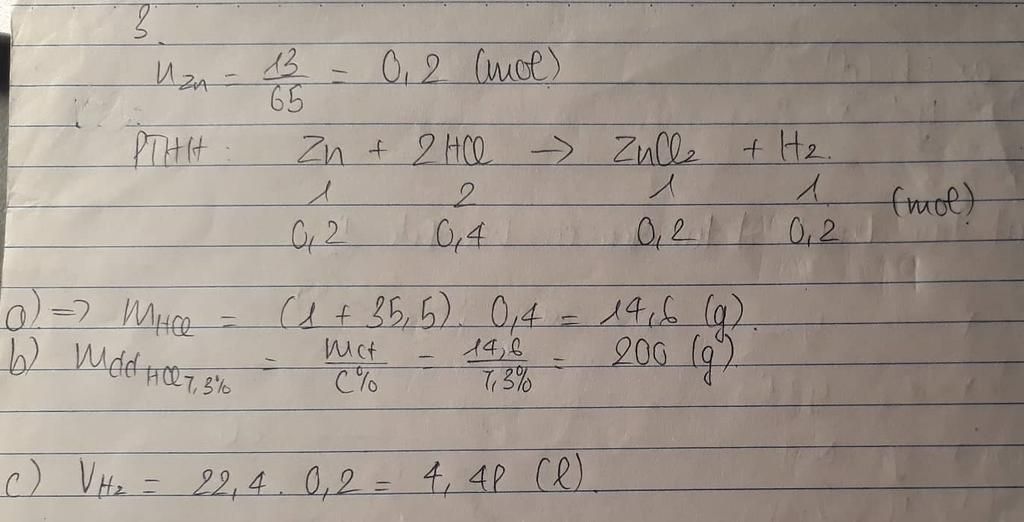 3.
nZn = 13/65 = 0,2 (mol)
PTHH: Zn + 2HCl → ZnCl2 + H2.
1 2 1 1 (mol)
0,2 0,4 0,2 0,2
a) => mHCl = (1 + 35,5). 0,4 = 14,6 (g).
b) mdd HCl 7,3% = mct/C% = 14,6/7,3% = 200 (g).
c) VH2 = 22,4. 0,2 = 4,48 (l).